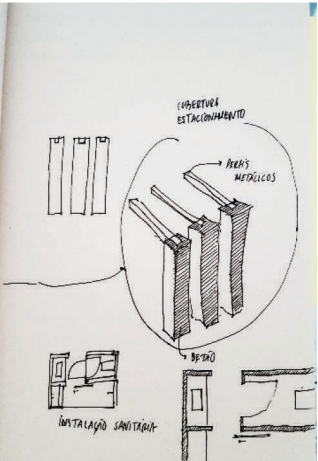 COBERTURA
ESTACIONAMENTO
PERFIS
METÁLICOS
BETÃO
INSTALAÇÃO SANITÁRIA